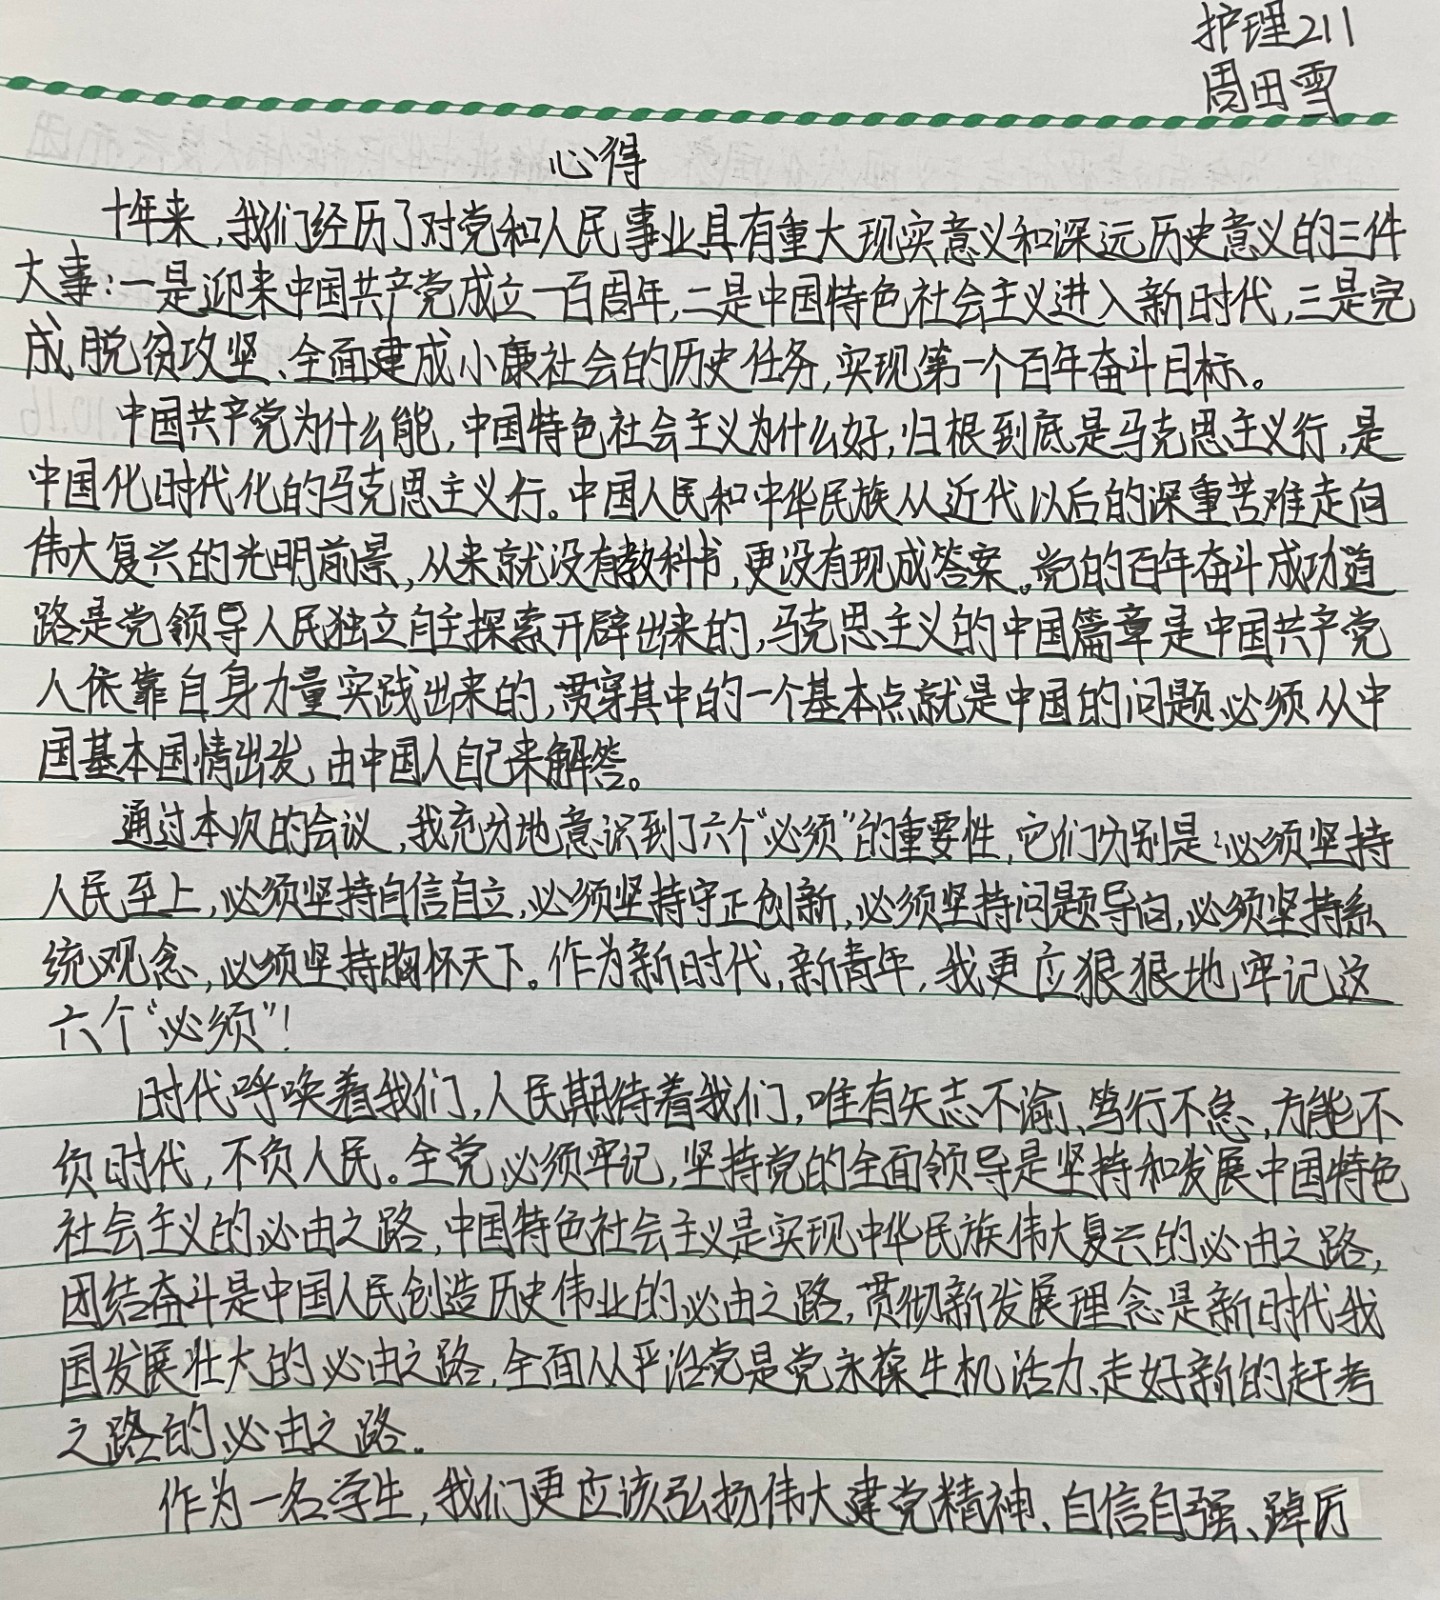 护理211
周田雪
心得
十年来,我们经历了对党和人民事业具有重大现实意义和深远历史意义的三件
大事:一是迎来中国共产党成立一百周年,二是中国特色社会主义进入新时代,三是完
成脱贫攻坚、全面建成小康社会的历史任务,实现第一个百年奋斗目标。
中国共产党为什么能,中国特色社会主义为什么好,归根到底是马克思主义行,是
中国化时代化的马克思主义行。中国人民和中华民族从近代以后的深重苦难走向
伟大复兴的光明前景,从来就没有教科书,更没有现成答案。党的百年奋斗成功道
路是党领导人民独立自主探索开辟出来的,马克思主义的中国篇章是中国共产党
人依靠自身力量实践出来的,贯穿其中的一个基本点就是中国的问题必须从中
国基本国情出发,由中国人自己来解答。
通过本次的会议,我充分地意识到了六个“必须”的重要性,它们分别是:必须坚持
人民至上,必须坚持自信自立,必须坚持守正创新,必须坚持问题导向,必须坚持系
统观念,必须坚持胸怀天下。作为新时代,新青年,我更应狠狠地牢记这
六个“必须”!
时代呼唤着我们,人民期待着我们,唯有矢志不渝、笃行不怠,方能不
负时代,不负人民。全党必须牢记,坚持党的全面领导是坚持和发展中国特色
社会主义的必由之路,中国特色社会主义是实现中华民族伟大复兴的必由之路,
团结奋斗是中国人民创造历史伟业的必由之路,贯彻新发展理念是新时代我
国发展壮大的必由之路,全面从严治党是党永葆生机活力、走好新的赶考
之路的必由之路。
作为一名学生,我们更应该弘扬伟大建党精神、自信自强、踔厉